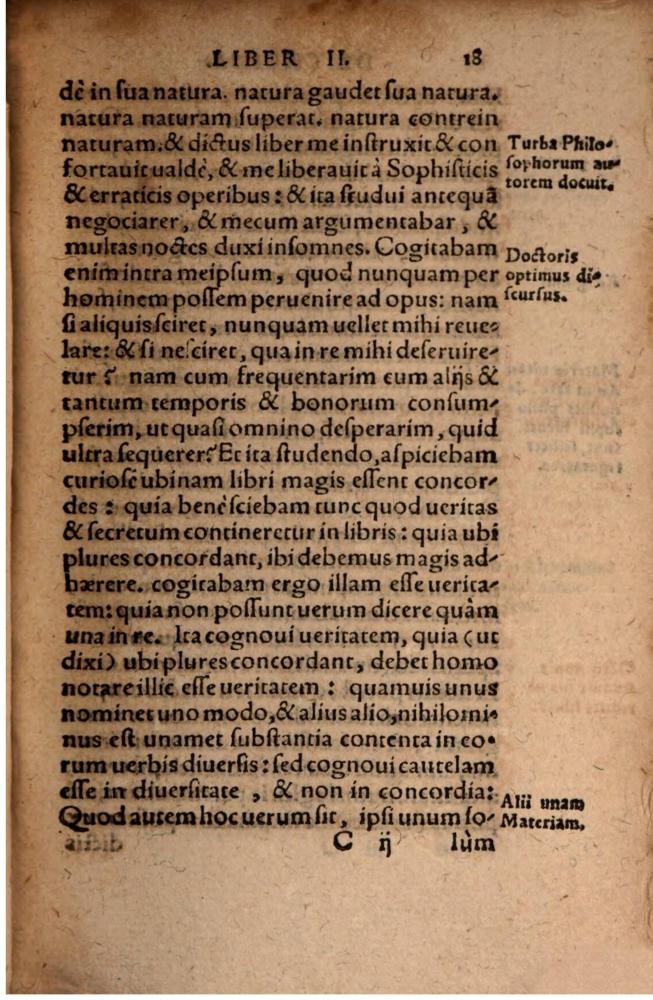 LIBER II. 18
dè in ſua natura. natura gaudet ſua natura.
natura naturam ſuperat. natura contrein
naturam.& dictus liber me inſtruxit & con
fortauit ualdè, & me liberauit à Sophiſticis
& erraticis operibus : & ita ſtudui antequã
negociarer, & mecum argumentabar , &
multas noctes duxi inſomnes. Cogitabam
enim intra meipſum, quod nunquam per
hominem poſſem peruenire ad opus: nam
ſi aliquis ſciret, nunquam uellet mihi reue-
lare: & ſi neſciret, qua in re mihi deſeruire-
tur ? nam cum frequentarim cum alijs &
tantum temporis & bonorum conſum-
pſerim, ut quaſi omnino deſperarim, quid
ultra ſequerer? Et ita ſtudendo, aſpiciebam
curioſè ubinam libri magis eſſent concor-
des : quia benè ſciebam tunc quod ueritas
& ſecretum contineretur in libris : quia ubi
plures concordant, ibi debemus magis ad-
hærere. cogitabam ergo illam eſſe uerita-
tem: quia non poſſunt uerum dicere quàm
una in re. Ita cognoui ueritatem, quia (ut
dixi) ubi plures concordant, debet homo
notare illic eſſe ueritatem : quamuis unus
nominet uno modo, & alius alio, nihilomi-
nus eſt unamet ſubſtantia contenta in eo-
rum uerbis diuerſis : ſed cognoui cautelam
eſſe in diuerſitate , & non in concordia:
Quod autem hoc uerum ſit, ipſi unum ſo-
C ij lùm
Turba Philo-
ſophorum au-
torem docuit.
Doctoris
optimus di-
ſcurſus.
Alii unam
Materiam.